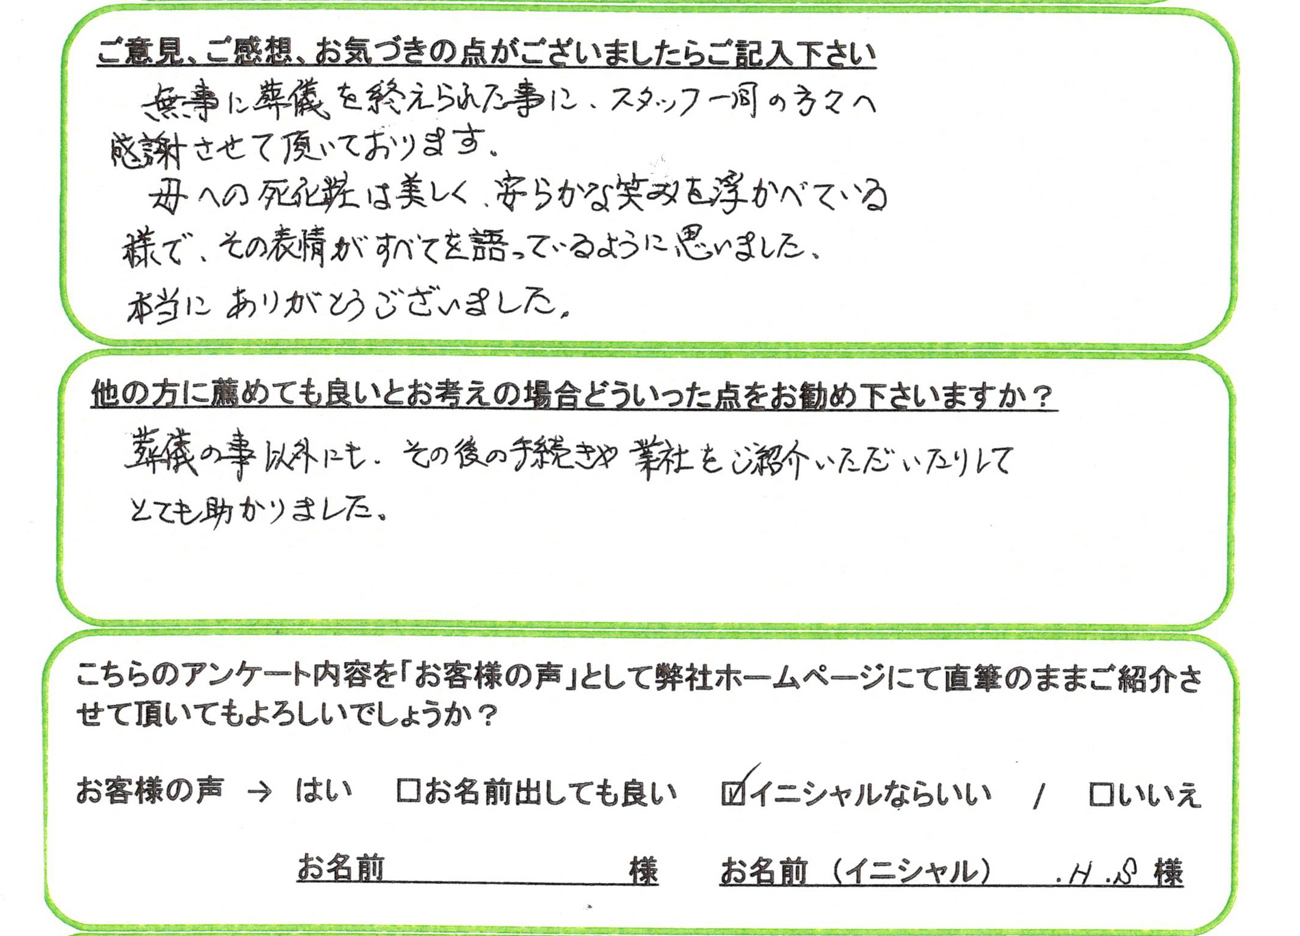 ご意見、ご感想、お気づきの点がございましたらご記入下さい
無事に葬儀を終えられた事に、スタッフ一同の方々へ
感謝させて頂いております。
母への死化粧は美しく、安らかな笑みを浮かべている
様で、その表情がすべてを語っているように思いました。
本当にありがとうございました。
他の方に薦めても良いとお考えの場合どういった点をお勧め下さいますか？
葬儀の事以外にも、その後の手続きや業社をご紹介いただいたりして
とても助かりました。
こちらのアンケート内容を「お客様の声」として弊社ホームページにて直筆のままご紹介さ
せて頂いてもよろしいでしょうか？
お客様の声 → はい □お名前出しても良い ☑イニシャルならいい / □いいえ
お名前 様 お名前（イニシャル） .H .S 様